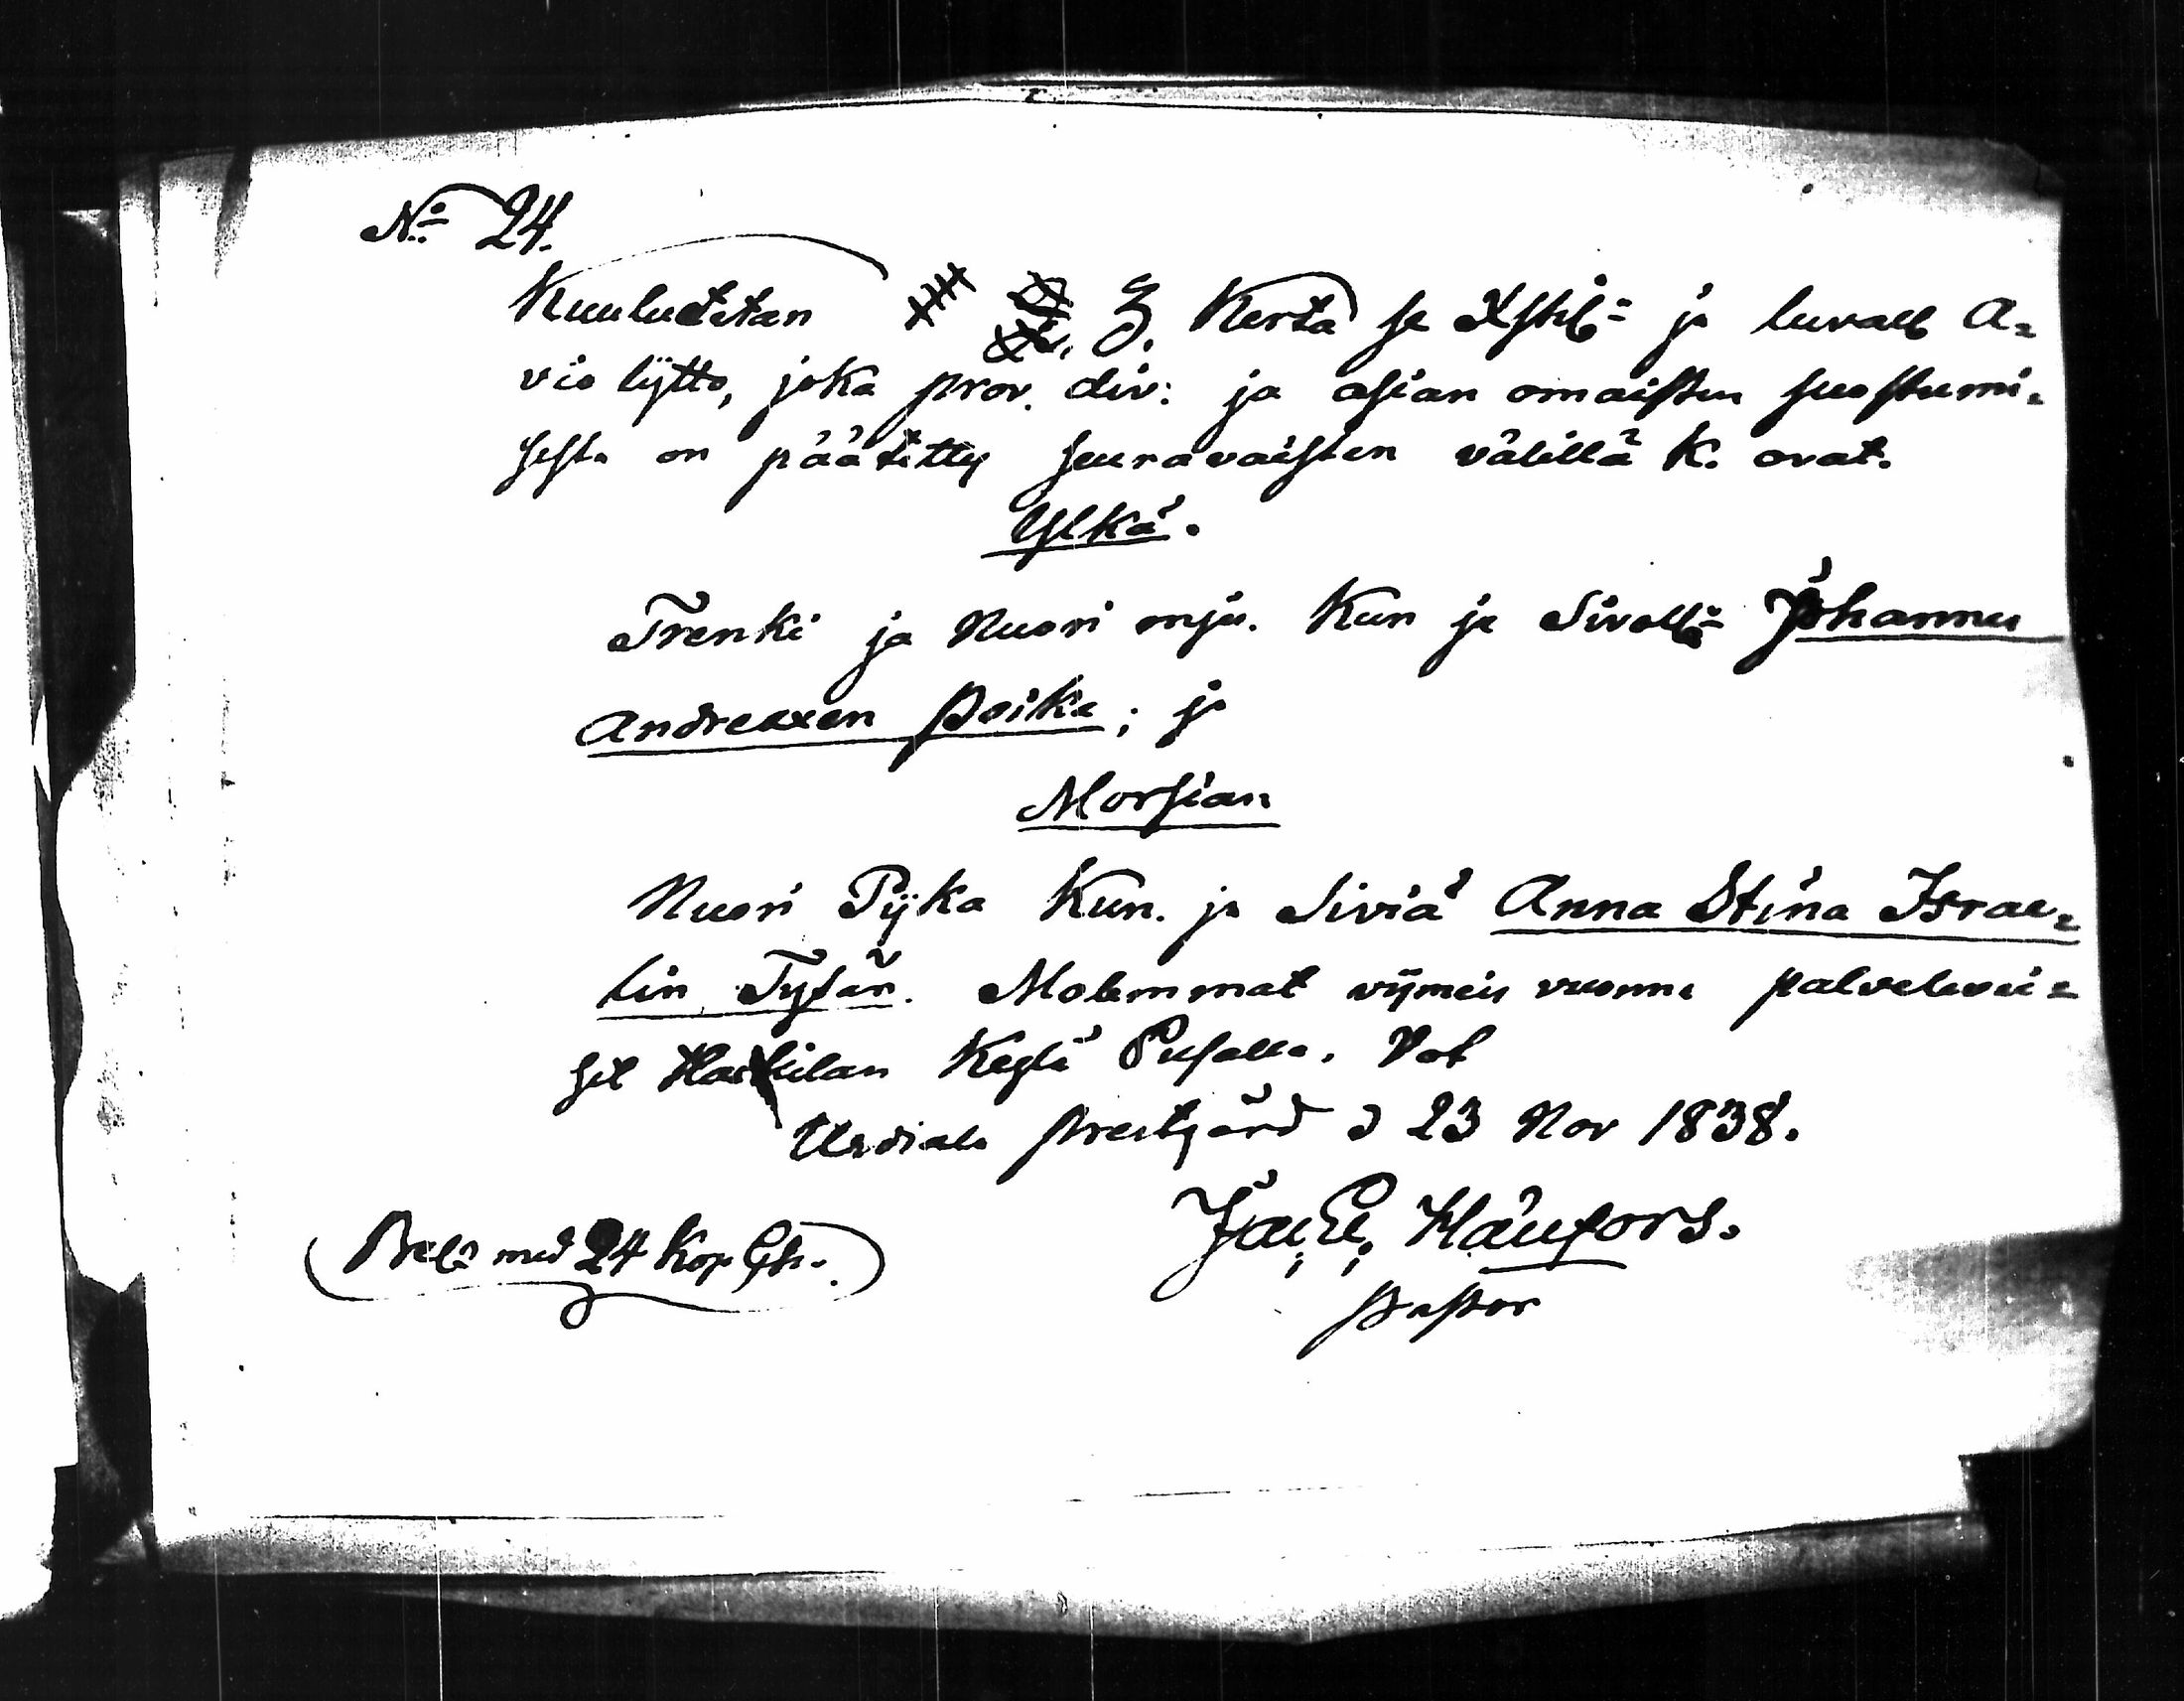 No 24.
Kuulutetan 3. Kerta se Xstil= ja luvall A=
vio lijtto, joka prov. div: ja asian omaisten suostumi=
sesta on päätetty seuravaisten välillä k. ovat.
Ylkä.
Trenki ja Nuori mjs. Kun ja Sivollä Johannes
Andreaxen Poika; ja
Morsian
Nuori Pijka Kun. ja Siviä Anna Stina Israe=
lin Tytär. Molemmat vijmeis vuonna palvelevai=
set Kylä
Urdiala prestgård d 23 Nov 1838.
Hänfors.
Pastor
Bel. med 24 Kop